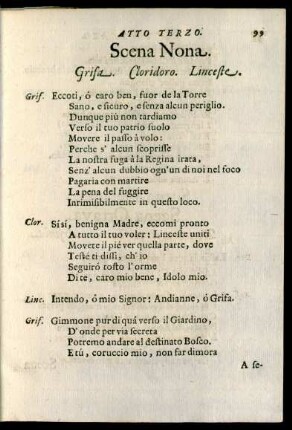 ATTO TERZO. 99
Scena Nona.
Grifa. Cloridoro. Linceste.
Grif. Eccoti, ó caro ben, fuor de la Torre
Sano, e sicuro, e senza alcun periglio.
Dunque più non tardiamo
Verso il tuo patrio suolo
Movere il passo à volo:
Perche s' alcun scoprisse
La nostra fuga à la Regina irata,
Senz' alcun dubbio ogn' un di noi nel foco
Pagaria con martire
La pena del fuggire
Inrimissibilmente in questo loco.
Clor. Sí sí, benigna Madre, eccomi pronto
A tutto il tuo voler: Linceste uniti
Movete il piè ver quella parte, dove
Testé ti dissi, ch' io
Seguiró tosto l'orme
Di te, caro mio bene, Idolo mio.
Linc. Intendo, ó mio Signor: Andianne, ó Grifa.
Grif. Gimmone pur di quá verso il Giardino,
D' onde per via secreta
Potremo andare al destinato Bosco.
E tú, coruccio mio, non far dimora
A se-